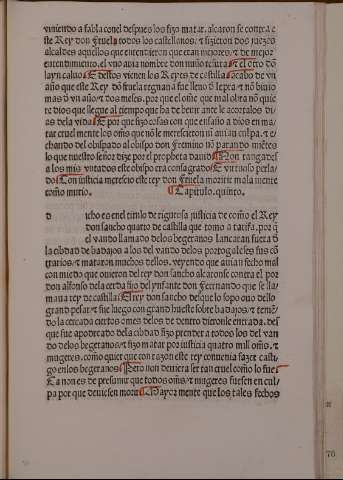 viniendo a fabla conel despues los fizo matar. alcaron se contra e
ste Rey don fruela todos los castellanos. ⁊ fizieron dos juezes
alcaldes aquellos que entendieron que eran mejores. ⁊ de mejor
entendimiento. el vno auia nombre don nuño rosura ⁊ el otro dõ
layn caluo. E destos vienen los Reyes de castilla. E acabo de vn
año que este Rey dõ fruela regnaua fue lleno d̃ lepra. ⁊ nõ biuio
mas d̃ vn año ⁊ dos meses. por que el oñe que mal obra nõ quie
re dios que llegue al tiempo que ha de beuir ante le acortalos di
as dela vida. E por que fizo cosas con que ensaño a dios en ma
tar cruel mente los oñes que nõ le merescieron ni auian culpa. ⁊ e
chando del obispado al obispo don fremino nõ parando miẽtes
lo que nuestro señor dize por el propheta dauid. Non tangades
a los mis vntados este obispo era consagrado. E virtuoso perla
do. Con justicia merecio este rey don fruela morir de mala mente
como murio. Capitulo. quinto.
d icho es enel titulo de rigurosa justicia de como el Rey
don sancho quarto de castilla que tomo a tarifa. por q̃
el vando llamado delos begeranos lançaran fuera d̃
la cibdad de badajos a los del vando delos portogaleses sus cõ
trarios ⁊ mataron muchos dellos. veyendo que auian fecho mal
con miedo que ouieron del rey don sancho alcaronse contra el por
don alfonso dela cerda fijo del ynfante don Fernando que se lla
maua rey de castilla. El rey don sancho desque lo sopo ouo dello
grand pesar. ⁊ fue luego con grand hueste sobre badajos. ⁊ teniẽ
do la cercada ciertos omes delos de dentro dieronle entrada. des
que fue apoderado dela cibdad fizo prender a todos los del van
do delos begeranos. ⁊ fizo matar por justicia quatro mill oñes. ⁊
mugeres. como quier que con razon este rey conuenia fazer casti
go enlos begeranos. Pero non deuiera ser tan cruel como lo fue
Ca non es de presumir que todos oñes. ⁊ mugeres fuesen en cul
pa por que deuiesen morir. Mayor mente que los tales fechos
76